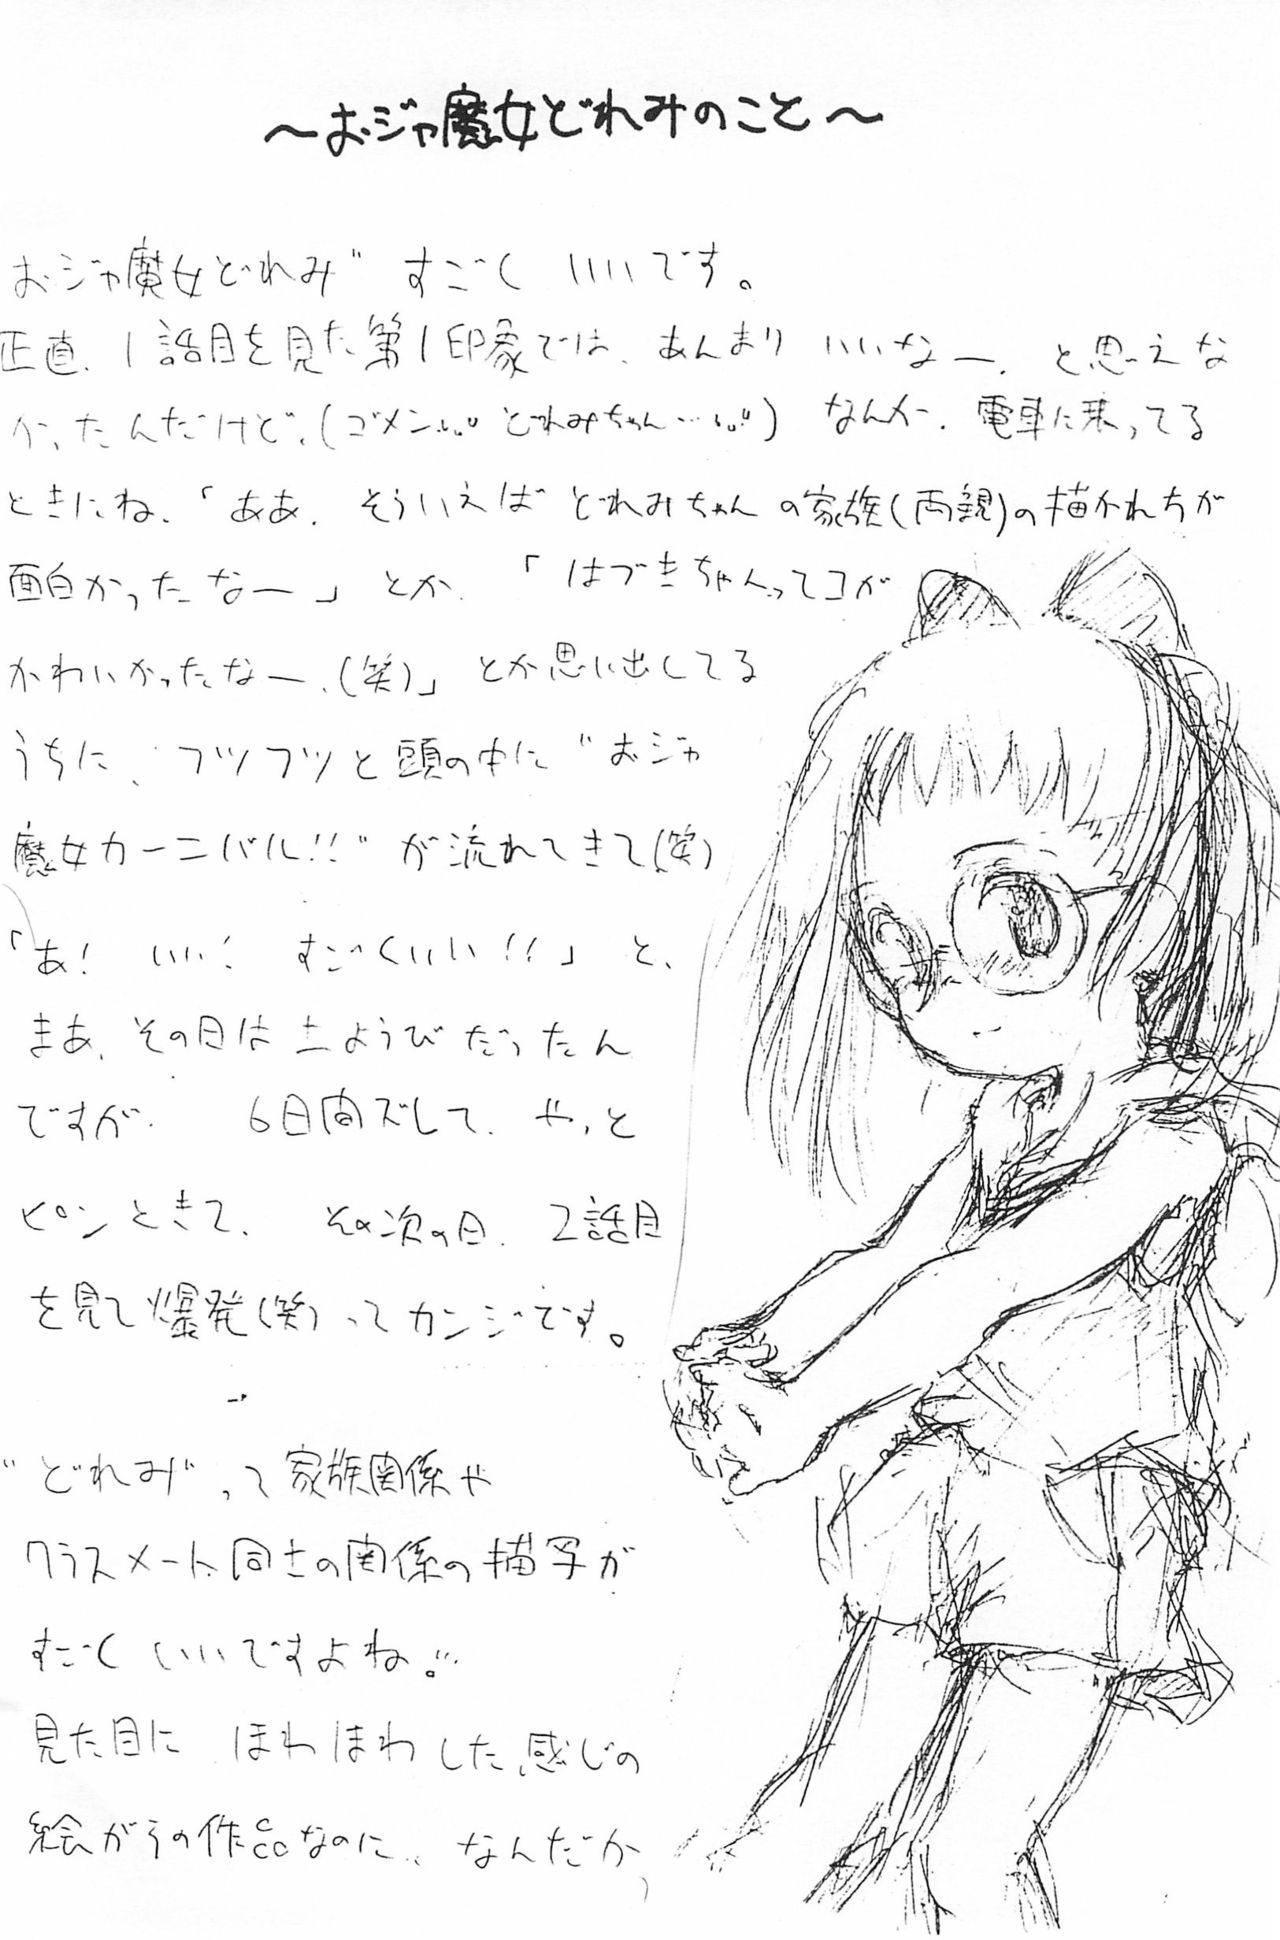 〜おジャ魔女どれみのこと〜
おジャ魔女どれみ" すごく いいです。
正直、1話目を見た第1印象では、あんまり いいなー、と思えな
かったんだけど、(ゴメン… どれみちゃん…) なんか、電車に乗ってる
ときにね、「ああ、そういえば どれみちゃんの家族(両親)の描かれ方が
面白かったなー」とか、「はづきちゃんってコが
かわいかったなー、(笑)」とか思い出してる
うちに、フツフツと頭の中に"おジャ
魔女カーニバル!!"が流れてきて(笑)
「あ! いい! すごくいい!!」と、
まあ、その日は土ようびだったん
ですが、 6日間ズレて、やっと
ピンときて、 その次の日、2話目
を見て爆発(笑)ってカンジです。
"どれみ"って家族関係や
クラスメート同士の関係の描写が
すごく いいですよね。…
見た目に ほわほわした感じの
絵がらの作品なのに、なんだか、